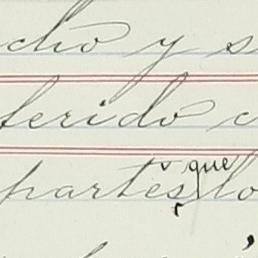 cho y s
ferido c
partes que lo